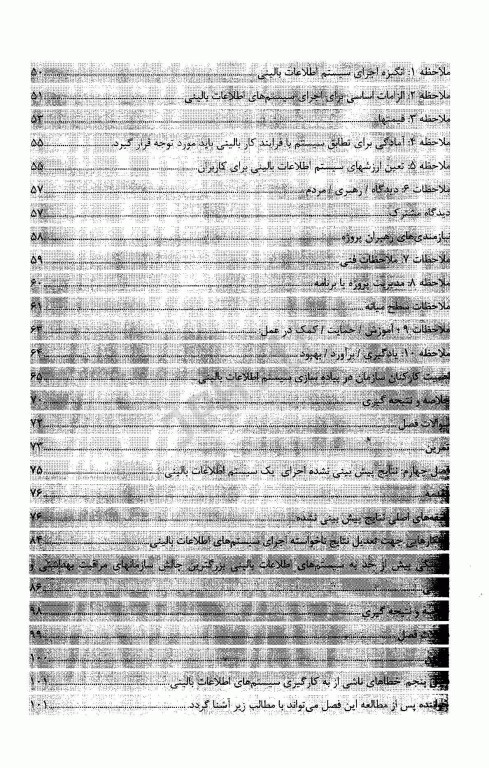 ملاحظه ۱: انگیزه اجرای سیستم اطلاعات بالینی ۵۰
ملاحظه ۲: الزامات اساسی برای اجرای سیستم‌های اطلاعات بالینی ۵۱
ملاحظه ۳: قیمتها ۵۳
ملاحظه ۴: آمادگی برای تطابق سیستم با فرایند کار بالینی باید مورد توجه قرار گیرد. ۵۵
ملاحظه ۵: تعین ارزشهای سیستم اطلاعات بالینی برای کاربران ۵۵
ملاحظات ۶: دیدگاه / رهبری / مردم ۵۷
دیدگاه مشترک ۵۷
نیازمندی‌های رهبران پروژه ۵۸
ملاحظات ۷: ملاحظات فنی ۵۹
ملاحظه ۸: مدیریت پروژه یا برنامه ۶۰
ملاحظات سطح میانه ۶۱
ملاحظات ۹: آموزش / حمایت / کمک در عمل ۶۳
ملاحظه ۱۰: یادگیری / برآورد / بهبود ۶۴
اهمیت کارکنان سازمان در پیاده سازی سیستم اطلاعات بالینی ۶۵
خلاصه و نتیجه گیری ۷۰
سوالات فصل ۷۲
تمرین ۷۳
فصل چهارم: نتایج پیش بینی نشده اجرای یک سیستم اطلاعات بالینی ۷۵
مقدمه ۷۶
های اصلی نتایج پیش بینی نشده ۷۶
جهت تعدیل نتایج ناخواسته اجرای سیستم‌های اطلاعات بالینی ۸۴
بیش از حد به سیستم‌های اطلاعات بالینی بزرگترین چالش سازمانهای مراقبت بهداشتی و
۸۶
و نتیجه گیری ۹۸
فصل ۹۹
۱۰۰
فصل پنجم: خطاهای ناشی از به کارگیری سیستم‌های اطلاعات بالینی ۱۰۱
خواننده پس از مطالعه این فصل می‌تواند با مطالب زیر آشنا گردد. ۱۰۱